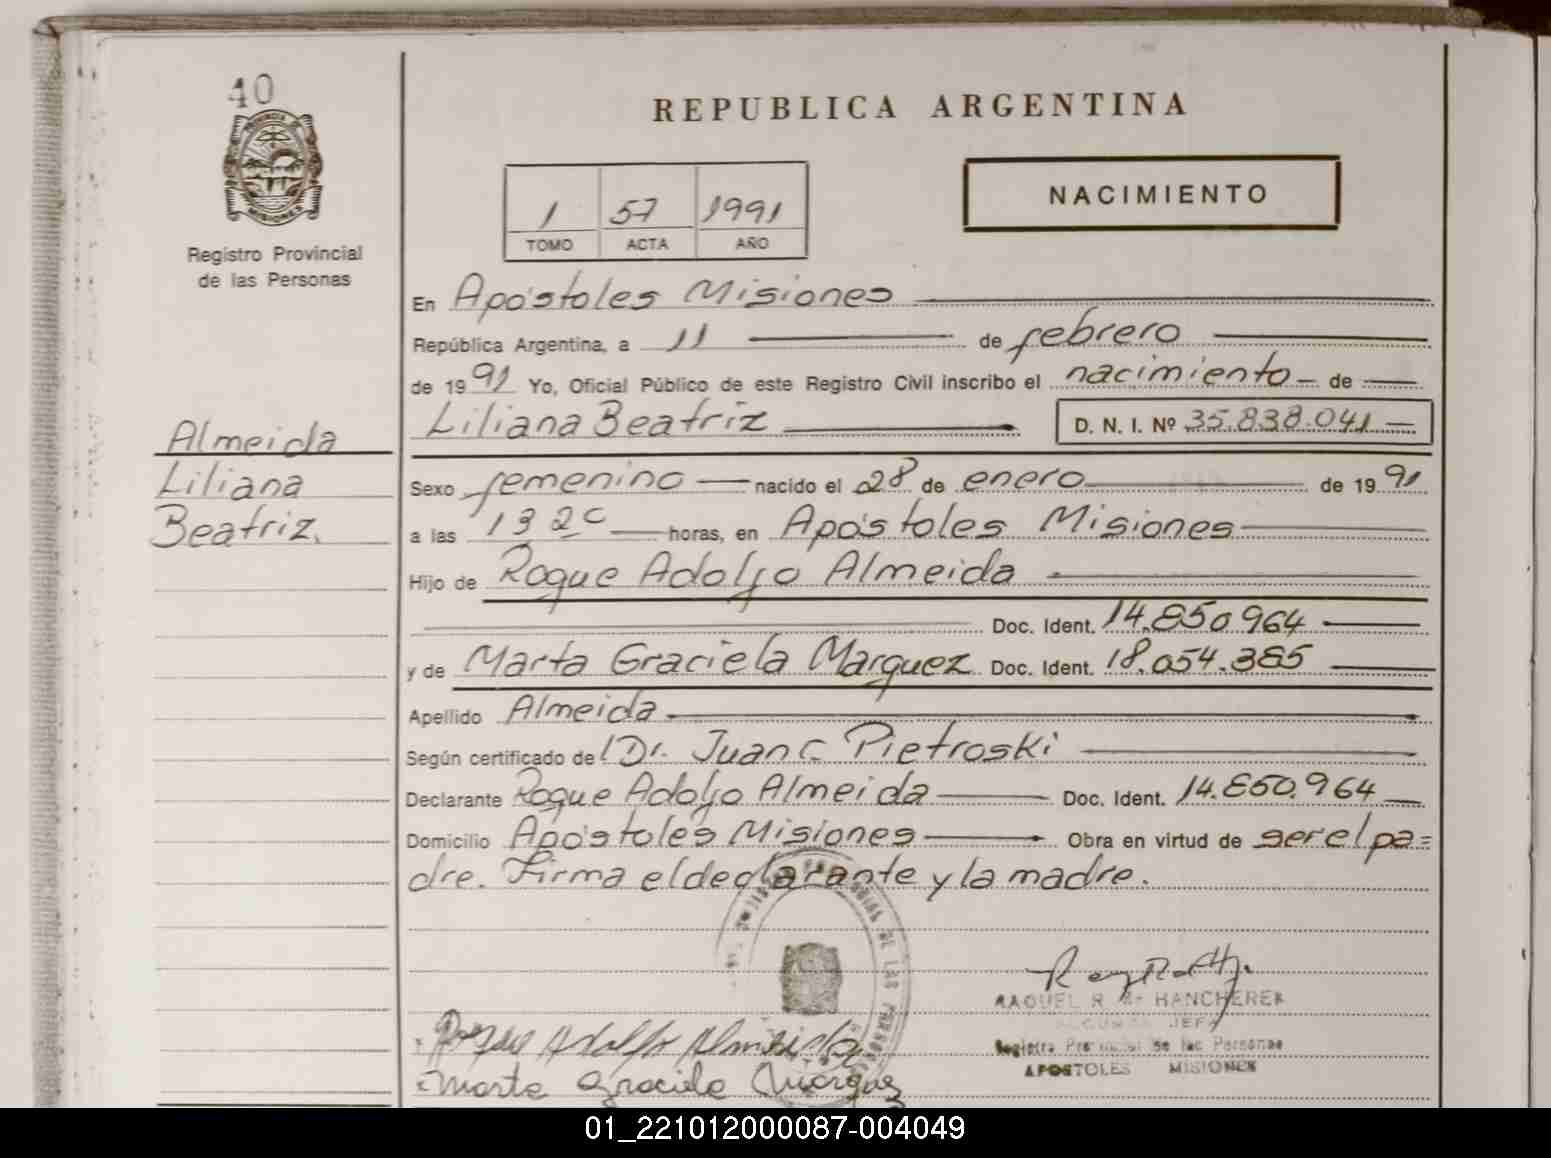 40
REPUBLICA ARGENTINA
PROVINCIA DE
MISIONES
Registro Provincial
de las Personas
1 57 1991
TOMO ACTA AÑO
NACIMIENTO
En Apóstoles Misiones
República Argentina, a 11 de febrero
de 1991 Yo, Oficial Público de este Registro Civil inscribo el nacimiento de
Liliana Beatriz D. N. I. Nº 35.838.041
Almeida
Liliana
Beatriz.
Sexo femenino nacido el 28 de enero de 1991
a las 13 20 horas, en Apóstoles Misiones
Hijo de Roque Adolfo Almeida
Doc. Ident. 14.850.964
y de Marta Graciela Marquez Doc. Ident. 18.054.385
Apellido Almeida
Según certificado de Dr. Juan C. Pietroski
Declarante Roque Adolfo Almeida Doc. Ident. 14.850.964
Domicilio Apóstoles Misiones Obra en virtud de ser el pa=
dre. Firma el declarante y la madre.
DE LAS
RAQUEL R. de HANCHEREK
SEGUNDA JEFA
Registro Provincial de las Personas
APOSTOLES MISIONES
Roque Adolfo Almeida
Marta Graciela Marquez
01_221012000087-004049